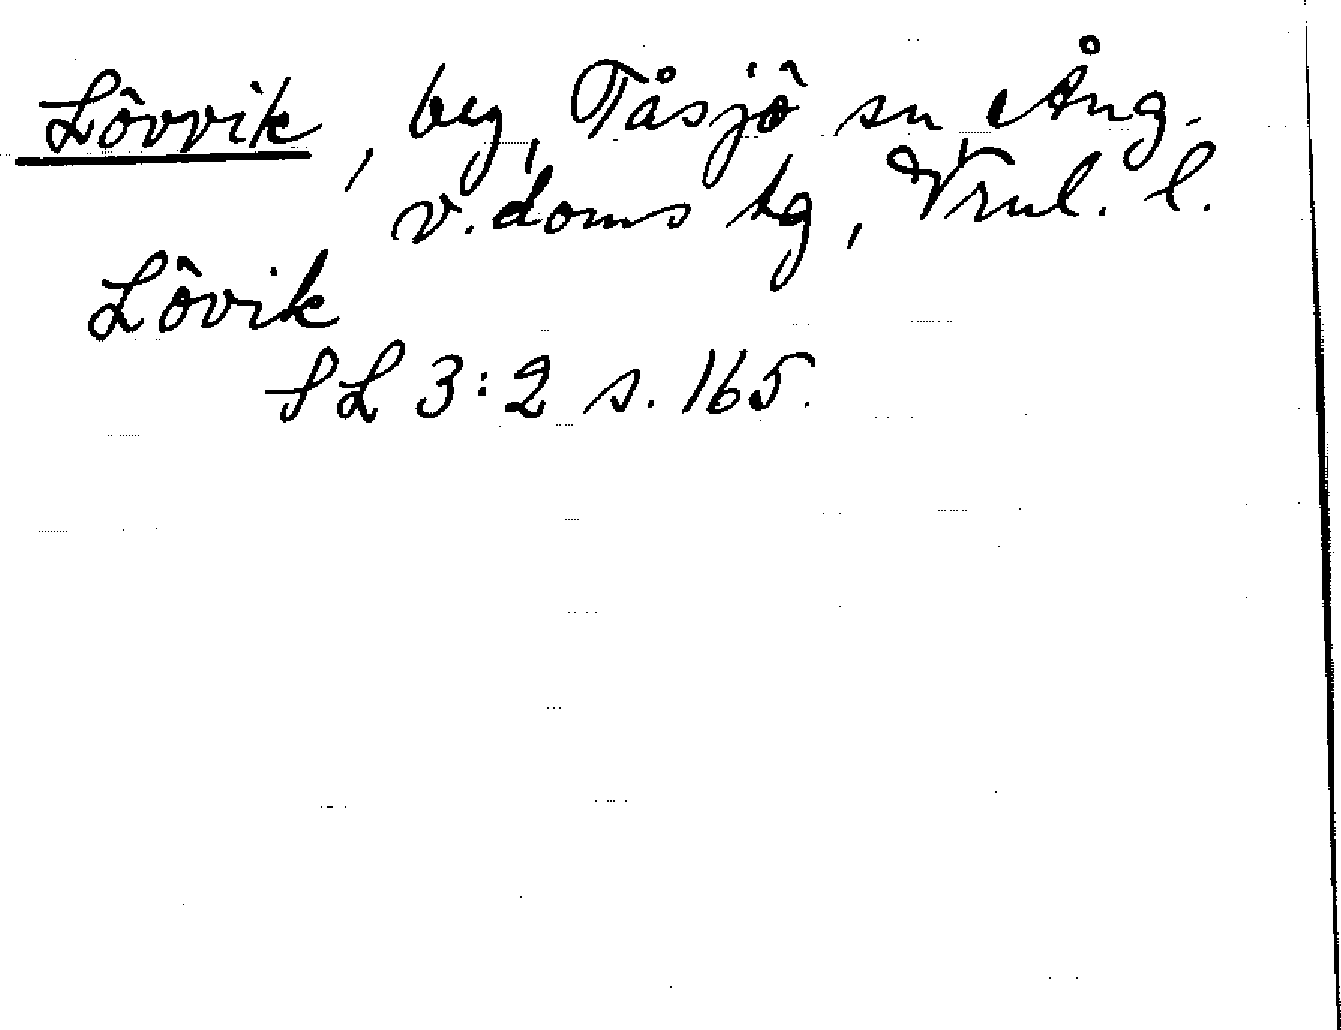 Lövvik, by, Tåsjö sn, Ång.
v. doms hg, Vrnl. l.
Lövik
SL 3:2 s. 165.